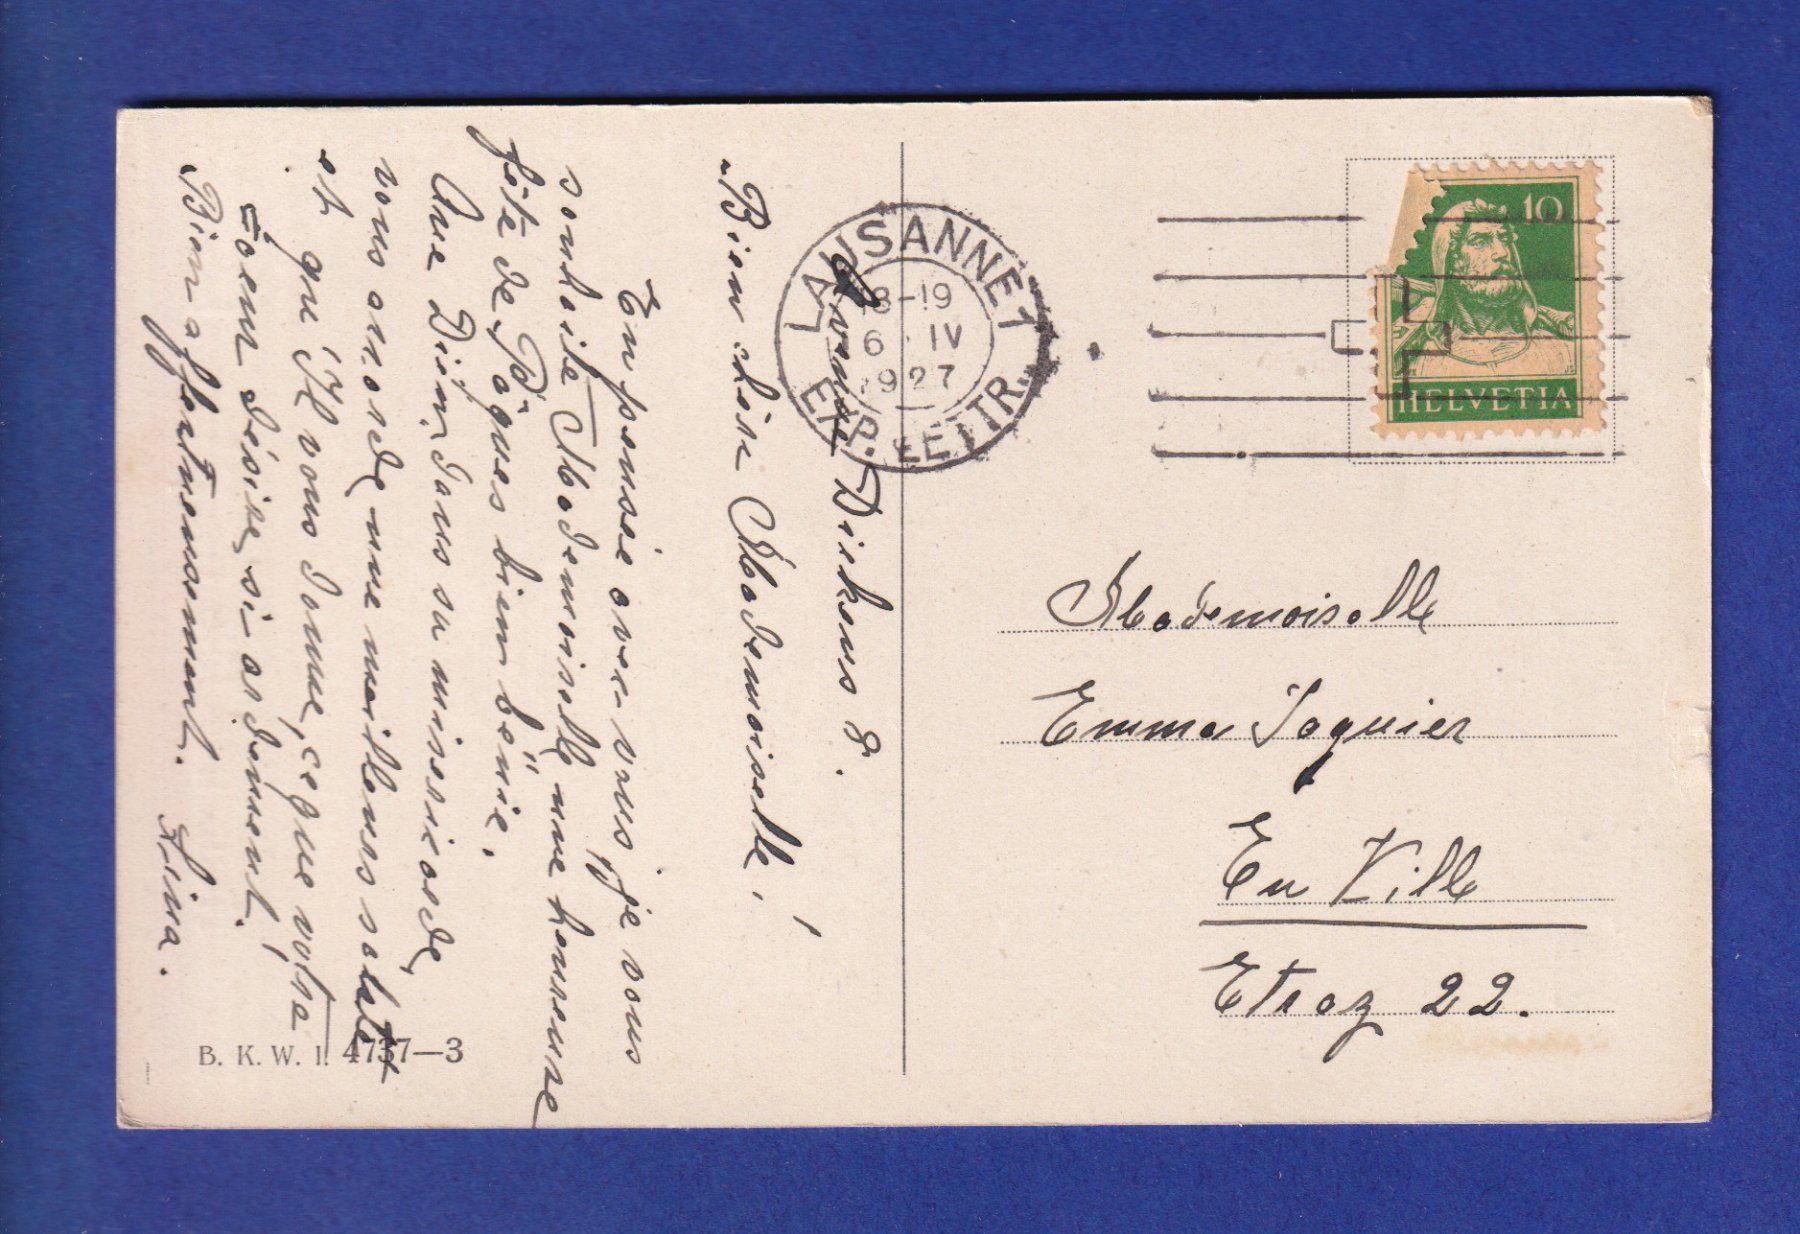 Avenue Dickens 8.
Bien chère Mademoiselle!
En pensée avec vous, je vous
souhaite Mademoiselle une heureuse
fête de Pâques bien bénie.
Que Dieu dans sa miséricorde,
vous accorde une meilleure santé
et qu'Il vous donne, ce que votre
coeur désire, si ardemment!
Bien affectueusement. Lina.
B. K. W. I. 4737—3
LAUSANNE 1
18-19
6. IV
1927
EXP. LETTR.
10
HELVETIA
Mademoiselle
Emma Jaquier
En Ville
Etraz 22.